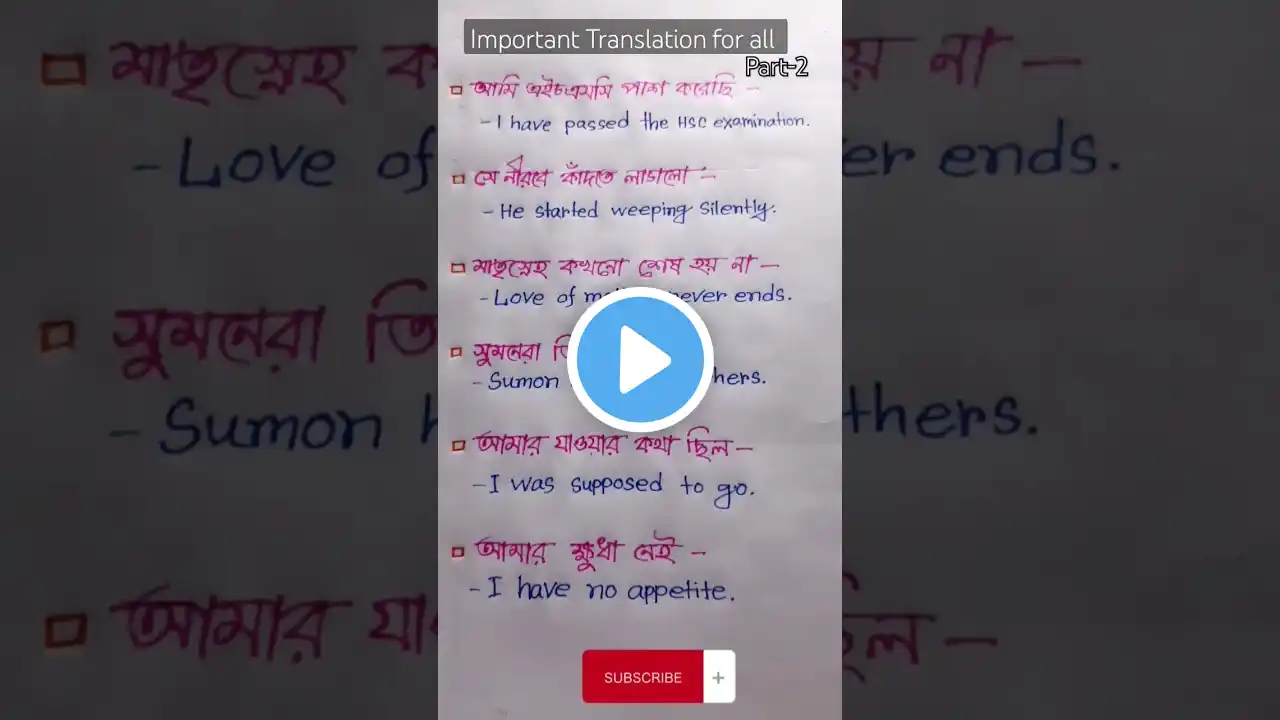 Important Translation for all
Part-2
▫ আমি এইচএসসি পাশ করেছি –
– I have passed the HSC examination.
▫ সে নীরবে কাঁদতে লাগলো –
– He started weeping silently.
▫ মাতৃস্নেহ কখনো শেষ হয় না –
– Love of never ends.
▫ সুমনেরা
– Sumon
▫ আমার যাওয়ার কথা ছিল –
– I was supposed to go.
▫ আমার ক্ষুধা নেই –
– I have no appetite.
SUBSCRIBE +